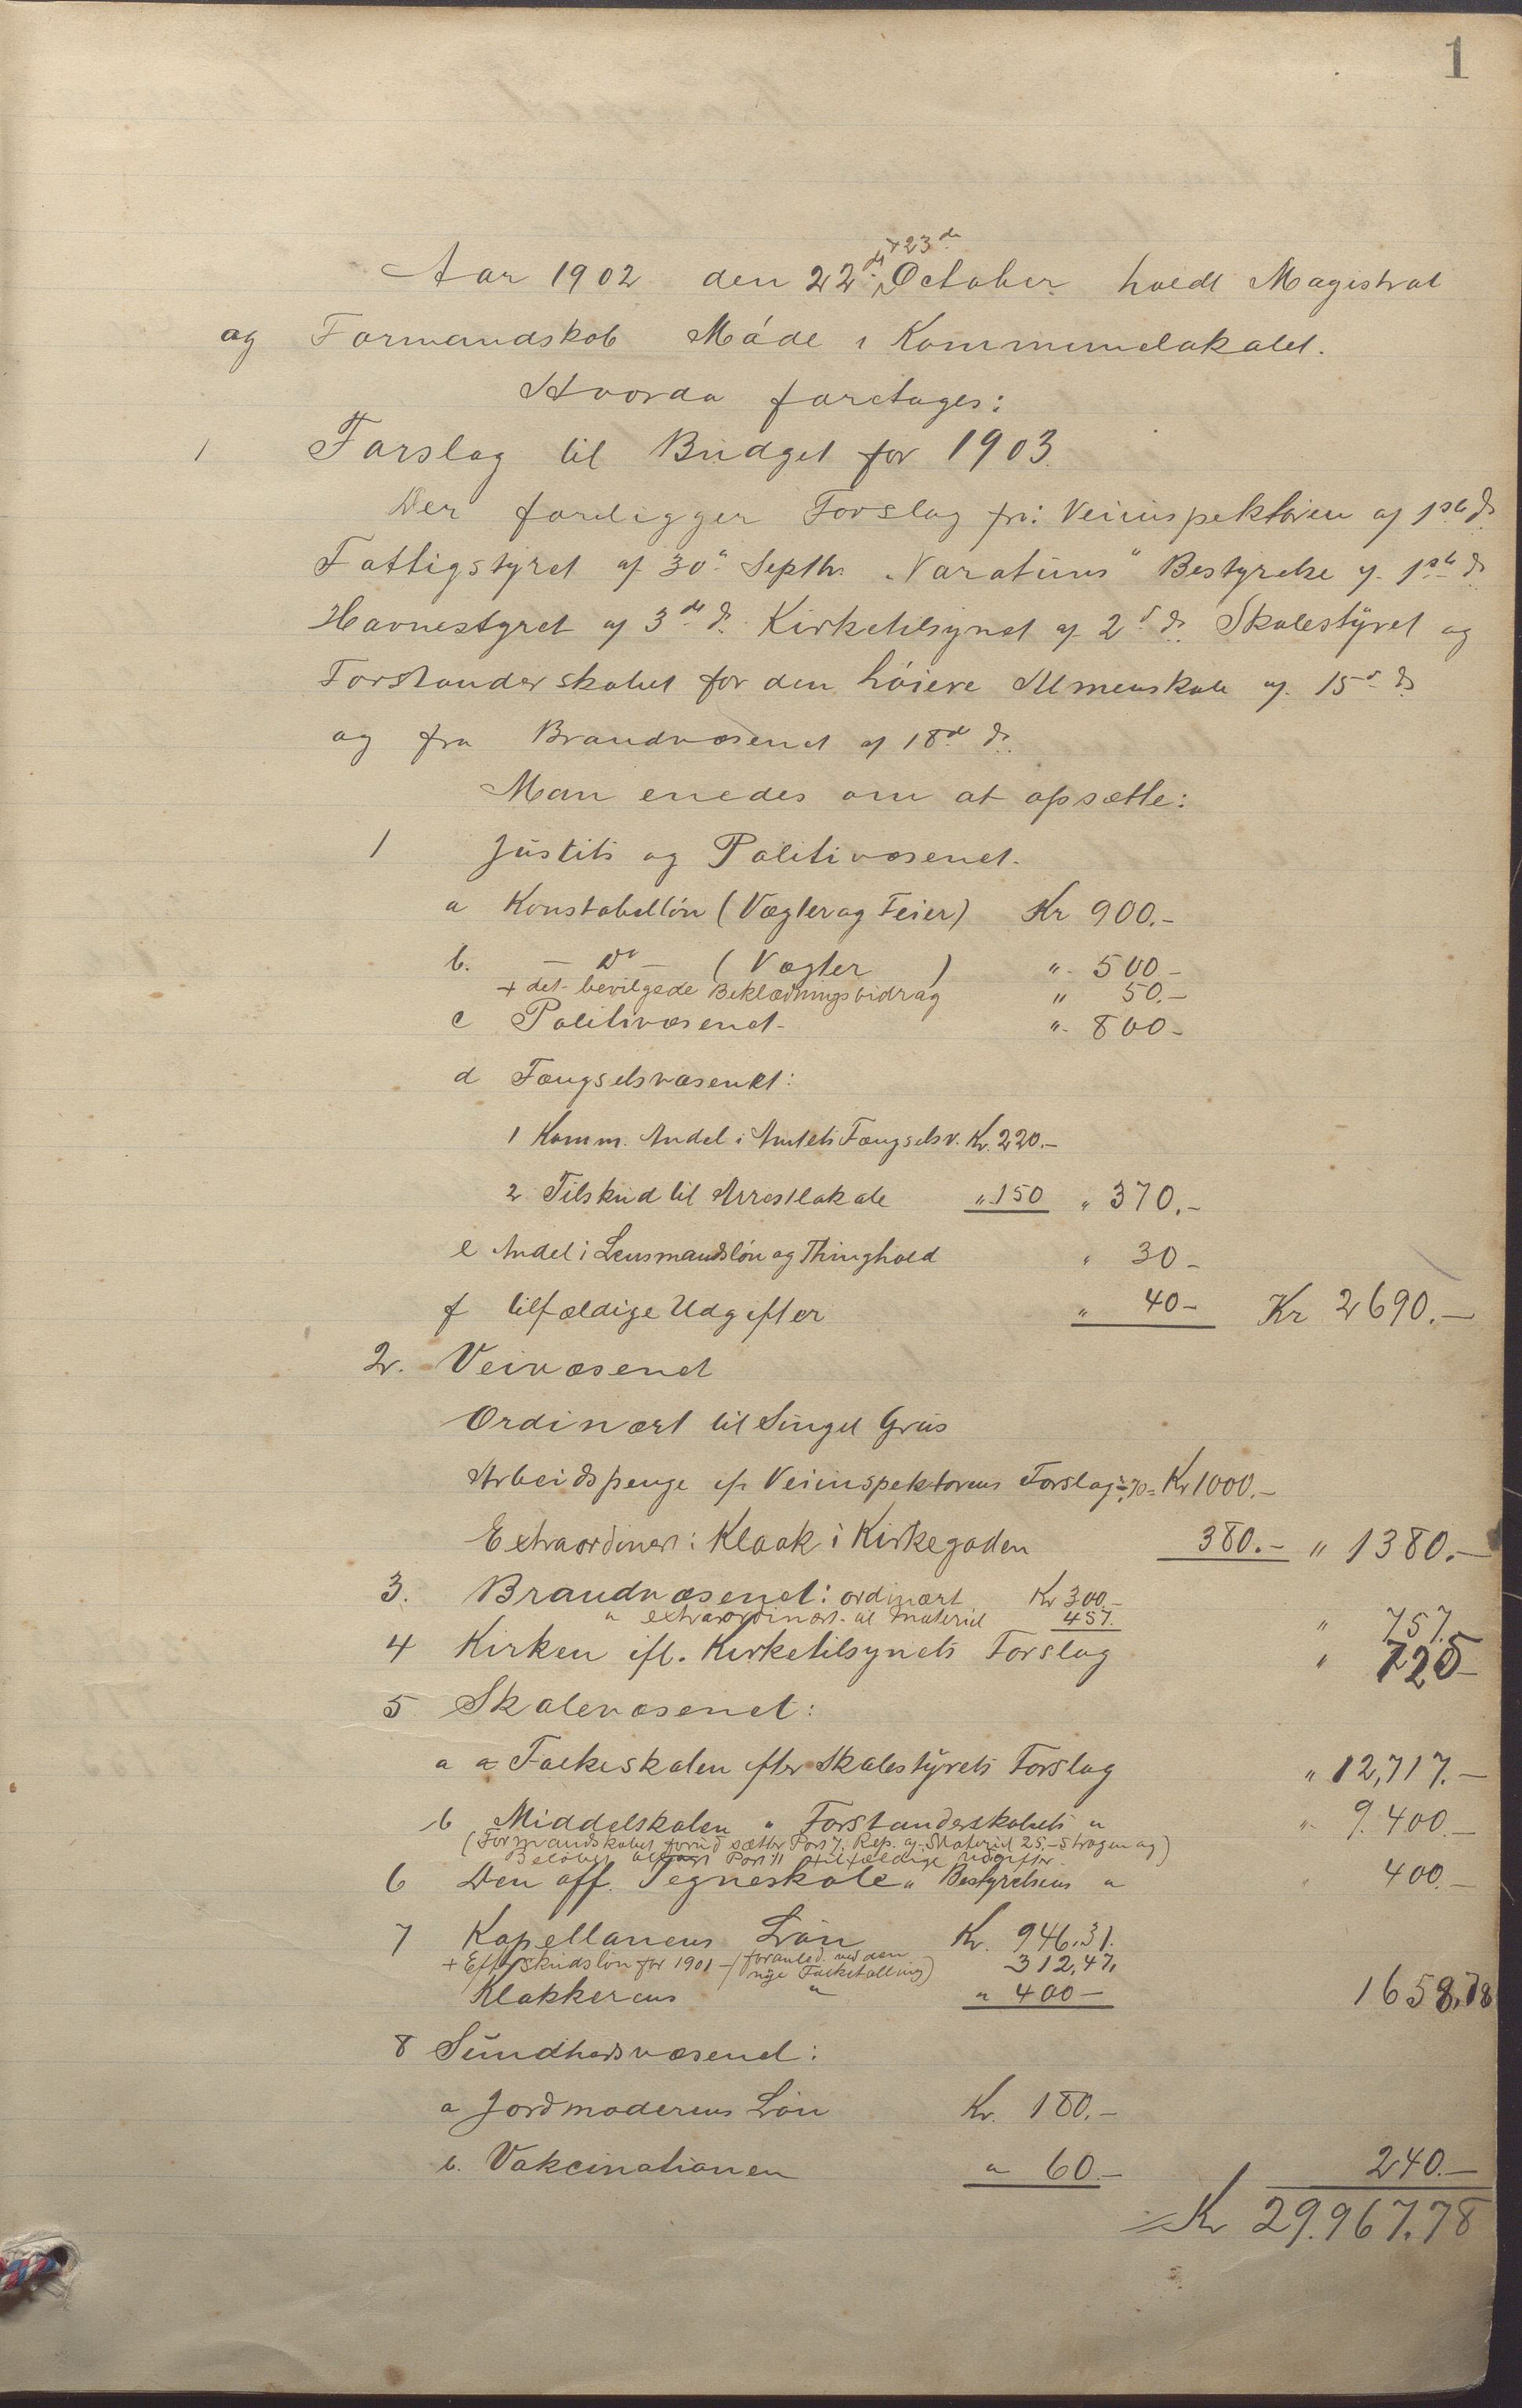 1
+ 23de
Aar 1902 den 22de October holdt Magistrat
og Formandskab Møde i Kommunelokalet.
Hvorda foretages:
1 Forslag til Budget for 1903.
Der foreligger Forslag fra: Veiinspektøren af 1ste ds.
Fattigstyret af 30te Septbr. „Varatuns" Bestyrelse af 1ste ds.
Havnestyret af 3de ds. Kirketilsynet af 2d ds. Skolestyret og
Forstanderskabet for den høiere Almenskole af 15de ds.
og fra Brandvæsenet af 18de ds.
Man enedes om at opsætte:
1 Justits og Politivæsenet.
a Konstabelløn (Vægter og Feier) Kr 900.-
b. - Do - (Vægter ) " 500-
+ det bevilgede Beklædningsbidrag " 50.-
c Politivæsenet- " 800-
d Fængselsvæsenet:
1 Komm. Andel i Amtets Fængselsv. Kr. 220.-
2 Tilskud til Arrestlokale " 150 " 370.-
e Andel i Lensmandsløn og Thinghold " 30-
f tilfældige Udgifter " 40- Kr 2690.-
2. Veivæsenet
Ordinært til Singel Grus
Arbeidspenge ef. Veiinspektørens Forslag ÷ 70 = Kr 1000.-
Extraordinært: Kloak i Kirkegaden 380.- " 1380.-
3. Brandvæsenet: ordinært Kr 300.-
" extraordinært til Materiel 457. " 757.
4 Kirken ifl. Kirketilsynets Forslag " 725-
5 Skolevæsenet:
a a Folkeskolen efter Skolestyrets Forslag " 12,717.-
b Middelskolen " Forstanderskabets " " 9.400.-
(Formandskabet forud sætter Post 7. Rep. af Materiel 25,- strøgen og)
Beløbet Post 11 tilfældige Udgifter.
6 Den off. Tegneskole " Bestyrelsens " 400.-
7 Kapellanens Løn Kr. 946.31.
+ Efterskudsløn for 1901 - (foranled. ved den
nye Folketælling) 312,47.
Klokkerens " " 400- 1658,78
8 Sundhedsvæsenet:
a Jordmoderens Løn Kr. 180.-
b. Vakcinationen " 60.- 240.-
Kr 29.967.78